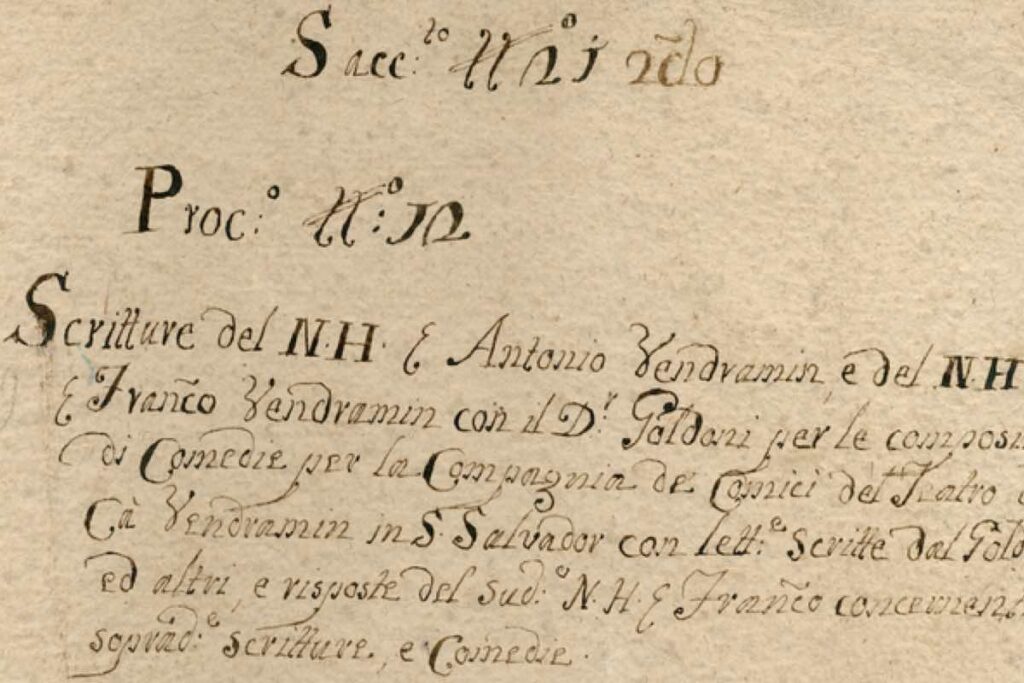 Sacc:to N° 21 2do
Proc:o N:o 12
Scritture del N.H. E Antonio Vendramin, e del N.H
E Franco Vendramin con il Dr Goldoni per le composi
di Comedie per la Compagnia de Comici del Teatro
Cà Vendramin in S. Salvador con lett:e scritte dal Goldo
ed altri, e risposte del sud:o N.H. E Franco concernen
soprad:e scritture, e Comedie.